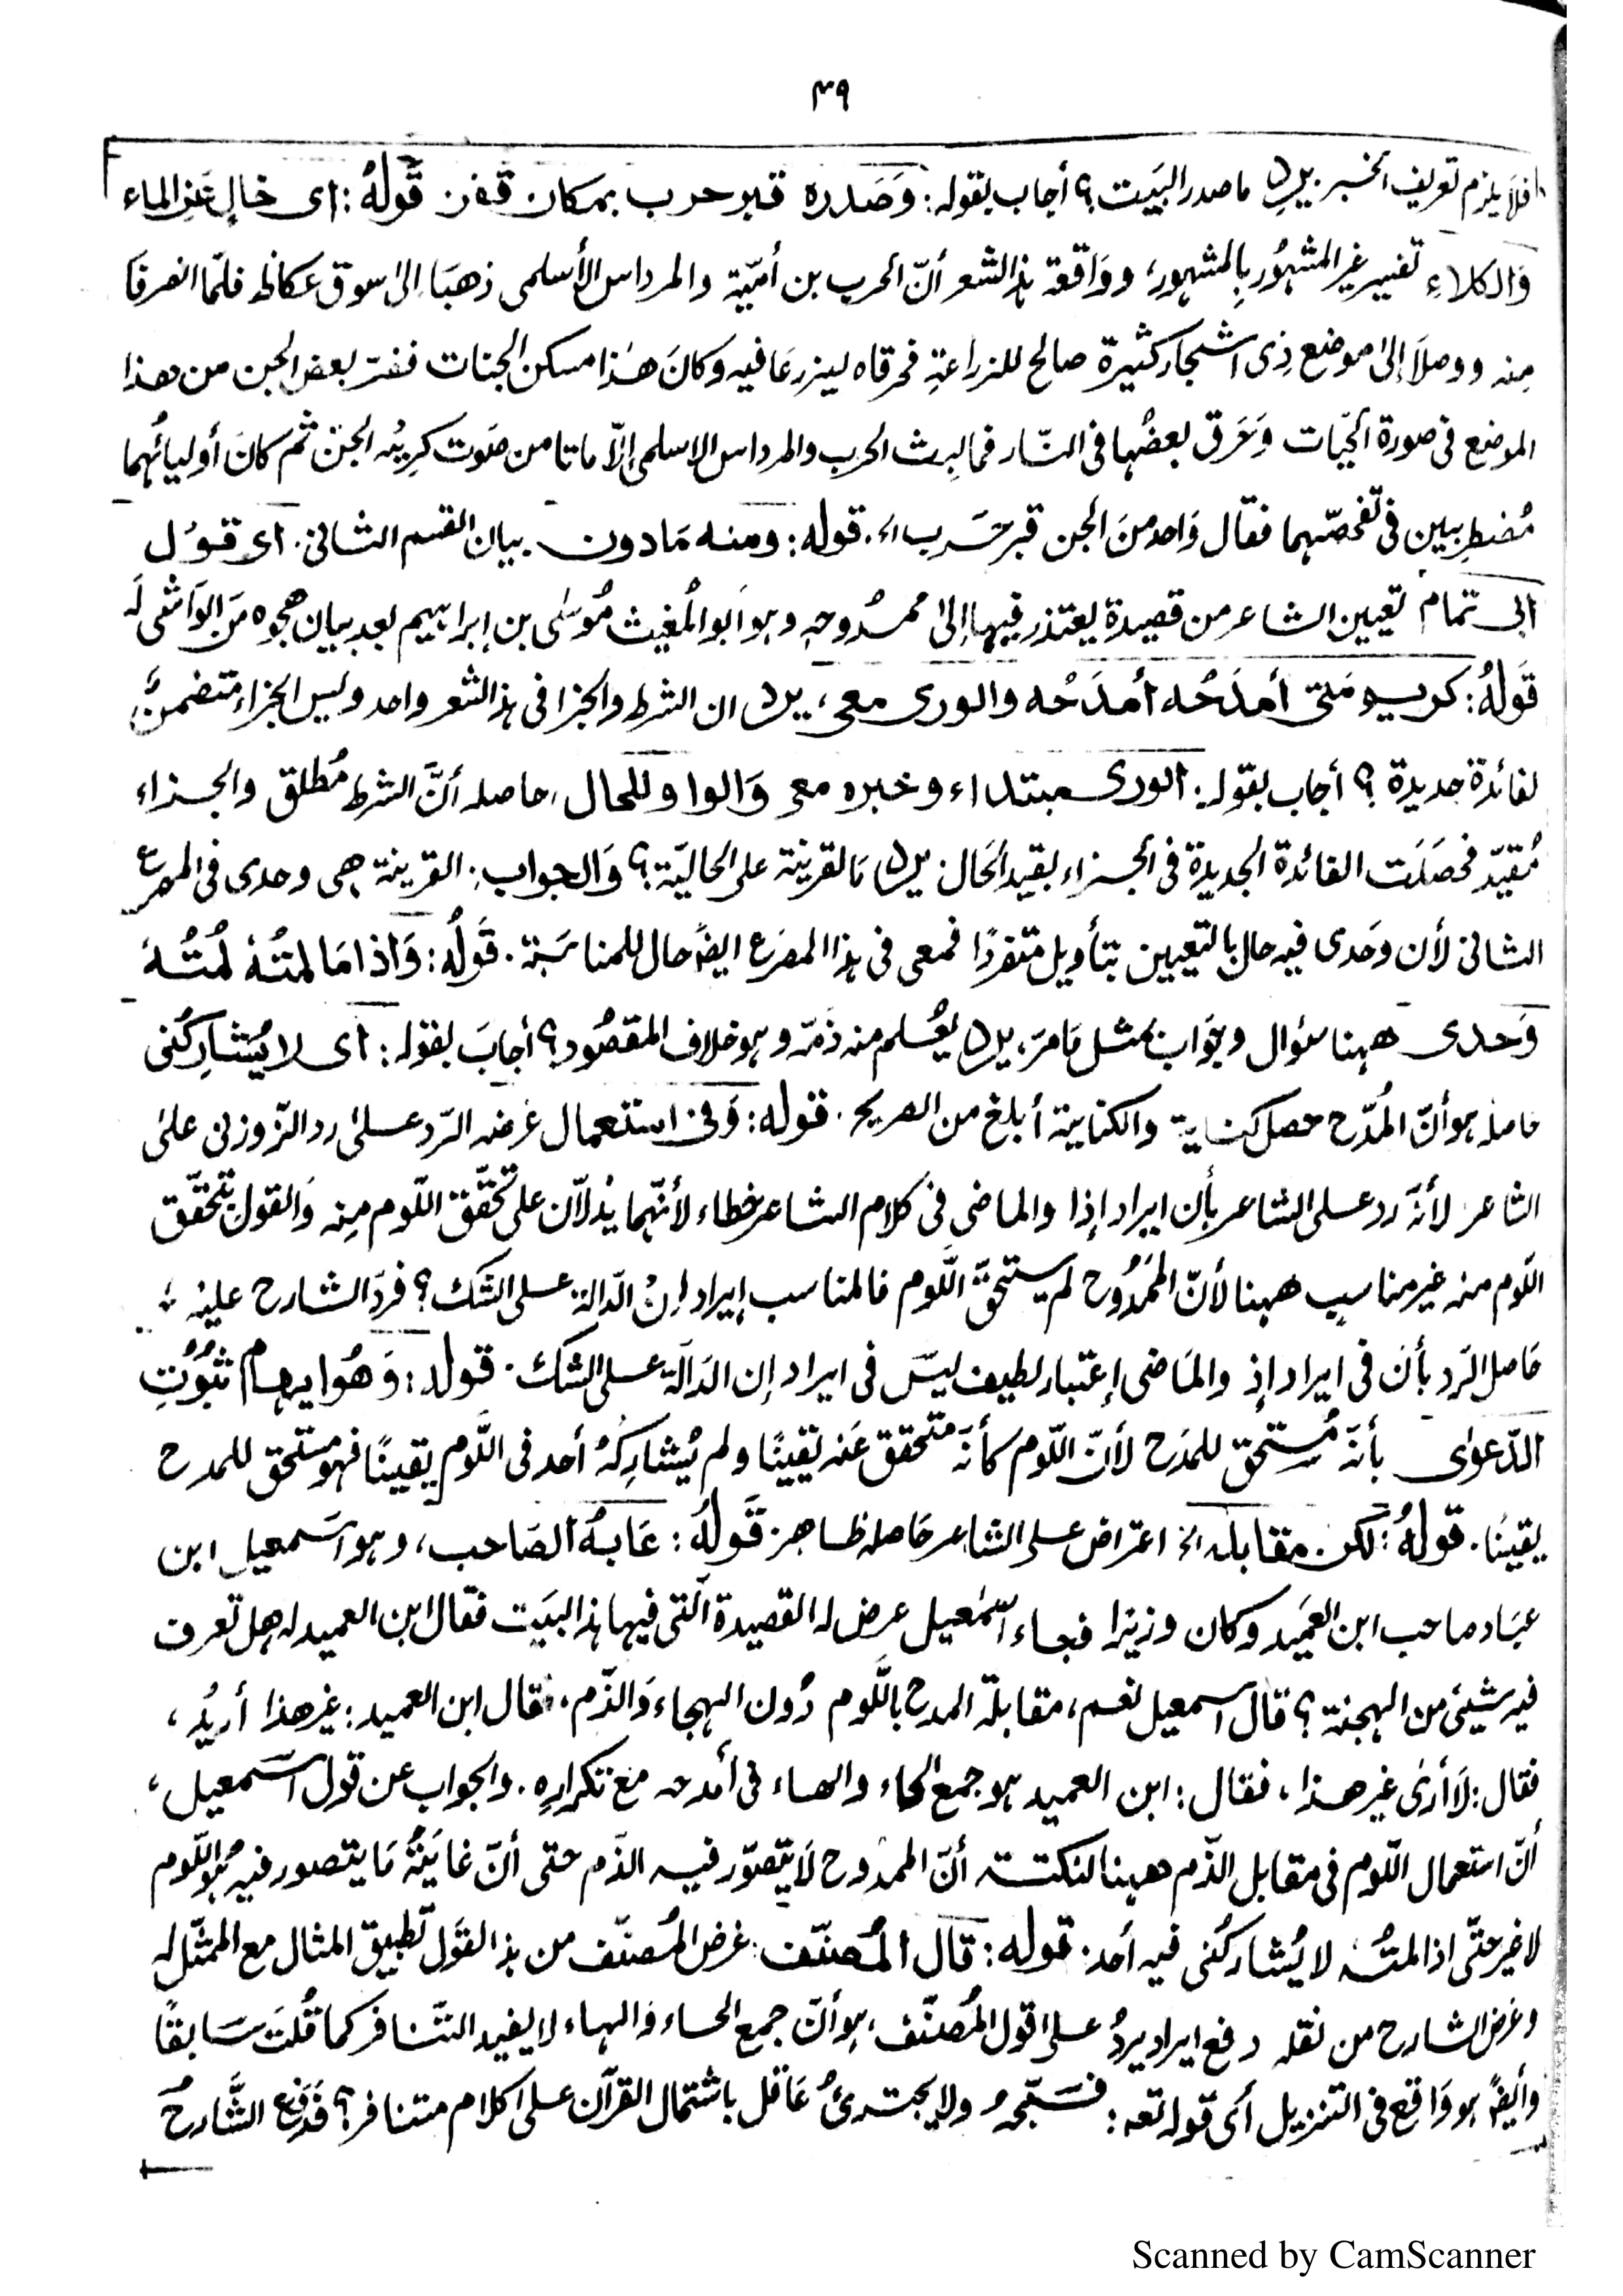 ٣٩
فلا يلزم تعريف الخبر. يرد ما صدر البَيت؟ أجاب بقوله: وَصَدره قبر حرب بمكان قفر. قَولهُ: اى خالٍ عَنِ الماء
وَالكلاءِ تفسير غير المشهُور بِالمشهور، ووَاقعة هذا الشعر أنّ الحرب بن أميّة والمرداس الأسلمى ذهبَا اِلىٰ سوق عكاظ فلمّا انصرفَا
مِنه ووصلَا إلىٰ موضع ذِى اشجار كثيرة صالح للزراعةِ فحرقاه ليزرعَا فيه وكانَ هٰذا مسكن الجنات ففر بعض الجن من هذا
الموضع فى صورة الحيّات وَحَرق بعضُها فى النّار فما لبِث الحرب والمرداس الاسلمى إلّا ماتا من صَوت كرِيْه الجنّ ثم كانَ أوليائُهما
مُضطرِبين فى تفحصّهما فقال وَاحد منَ الجن قبر حَرب اﻟﺦ. قوله: ومنه مَا دون بيان القسم الثانى. اى قول
ابى تمام تعيين الشاعر من قصيدة يعتذر فيها إلىٰ ممدُوحهٖ وهو اَبو المُغيث مُوسٰى بن إبراهيم بعد بيان هجوه مَن الوَاشى لَه
قَولهُ: كريم مَتى أمدَحْه أمدَحْه والورى معى، يرد ان الشرط والجزا فى هذا الشعر واحد وليس الجزاء متضمنً
لفائدة جديدة؟ أجاب بقوله: الورى مبتداء وخبره معى وَالواو للحال، حاصله أنَّ الشرط مُطلق والجزاء
مُقيّد فحصَلَت الفائدة الجديدة فى الجزاء بقيد الحَال. يرد مَا لقرينة على الحاليّة؟ وَالجواب: القرينة هى وحدى فى المصرع
الثانى لأن وحَدى فيه حال بالتعيين بتأويل متفردًا فمعى فى هذا المصرَع ايضً حال للمناسَبة. قَولُه: وَاذا مَا لمتُهٗ لُمتُهٗ
وَحدى ههنا سؤال وجَواب مثل مَا مرَ، يرد يُعلم منه ذَمّه وهو خلاف المقصُود؟ أجابَ بقوله: اى لا يُشارِكُنى
حاصله هو أنّ المُدّح حصل كناية والكناية أبلغ من الصريح. قوله: وَفى استعمال غرضه الرّد علىٰ رد الزّوزنى علىٰ
الشاعر لأنّه رد على الشاعر بأن ايراد إذا والماضى فى كلام الشاعر خطاء لأنّهما يدلاّن على تحقّق اللّوم مِنه وَالقول بتحقّق
اللّوم منه غير مناسب ههنا لأنّ المَمدُوح لم يستحقّ اللّوم فالمناسب إيراد إنْ الدّالة على الشك؟ فردّ الشارح عليه:
حَاصل الرّد بأن فى ايراد إذ والمَاضى إعتبار لطيف ليسَ فى ايراد إن الدَالّة على الشك. قوله: وَهُو ايهام ثبُوتِ
الدّعوٰى بأنّه مُستحق للمدَح لأنّ اللّوم كأنّه متحقق عَنه يقينًا ولم يُشارِكهُ أحد فى اللّوم يقينًا فهو مستحق للمدح
يقينًا. قولهُ: لكن مقابلة الخ اعتراض على الشاعر حَاصله ظاهر. قَولهُ: عَابهُ الصَاحب، وهو اسمعيل ابن
عبَاد صاحب ابن العمَيد وكان وزيرا فجاء اسمٰعيل عرض له القصيدة الّتى فيها هذا البيَت فقال ابن العميد له هل تعرف
فيه شيئ من الهجنة؟ قال اسمعيل نعم، مقابلة المدح باللّوم دُون الهجاء وَالذّم. فقال ابن العميد: غير هذا أريدُ،
فقال: لَا أرٰى غير هذا، فقال: ابن العميد هو جمع الحاء والهاء فى أمدحه مع تكراره. والجواب عن قول اسمعيل،
أنّ استعمال اللّوم فى مقابل الذّم ههنا لنكتة أنّ الممدوح لَا يتصوّر فيه الذّم حتى أنّ غايَتهُ مَا يتصور فيه هُو اللّوم
لا غير حتّى اذا لمتُهٗ لا يُشاركُنى فيه أحد. قوله: قال المُصنّف غرض المُصنّف من هذا القَول تطبيق المثال مع الممثّل له
وغَرض الشارح من نقله دفع ايراد يردُ على قول المُصنّف، هو أنّ جمع الحاء وَالهاء لا يفيد التّنافر كما قُلتَ سَابقًا
وأيضً هو وَاقع فى التنزيل أى قوله تعہ: فسَبّحهُ ولا يجترئُ عَاقل باشتمال القرآن على كلام متنافر؟ فَدَفع الشَّارحُ
Scanned by CamScanner